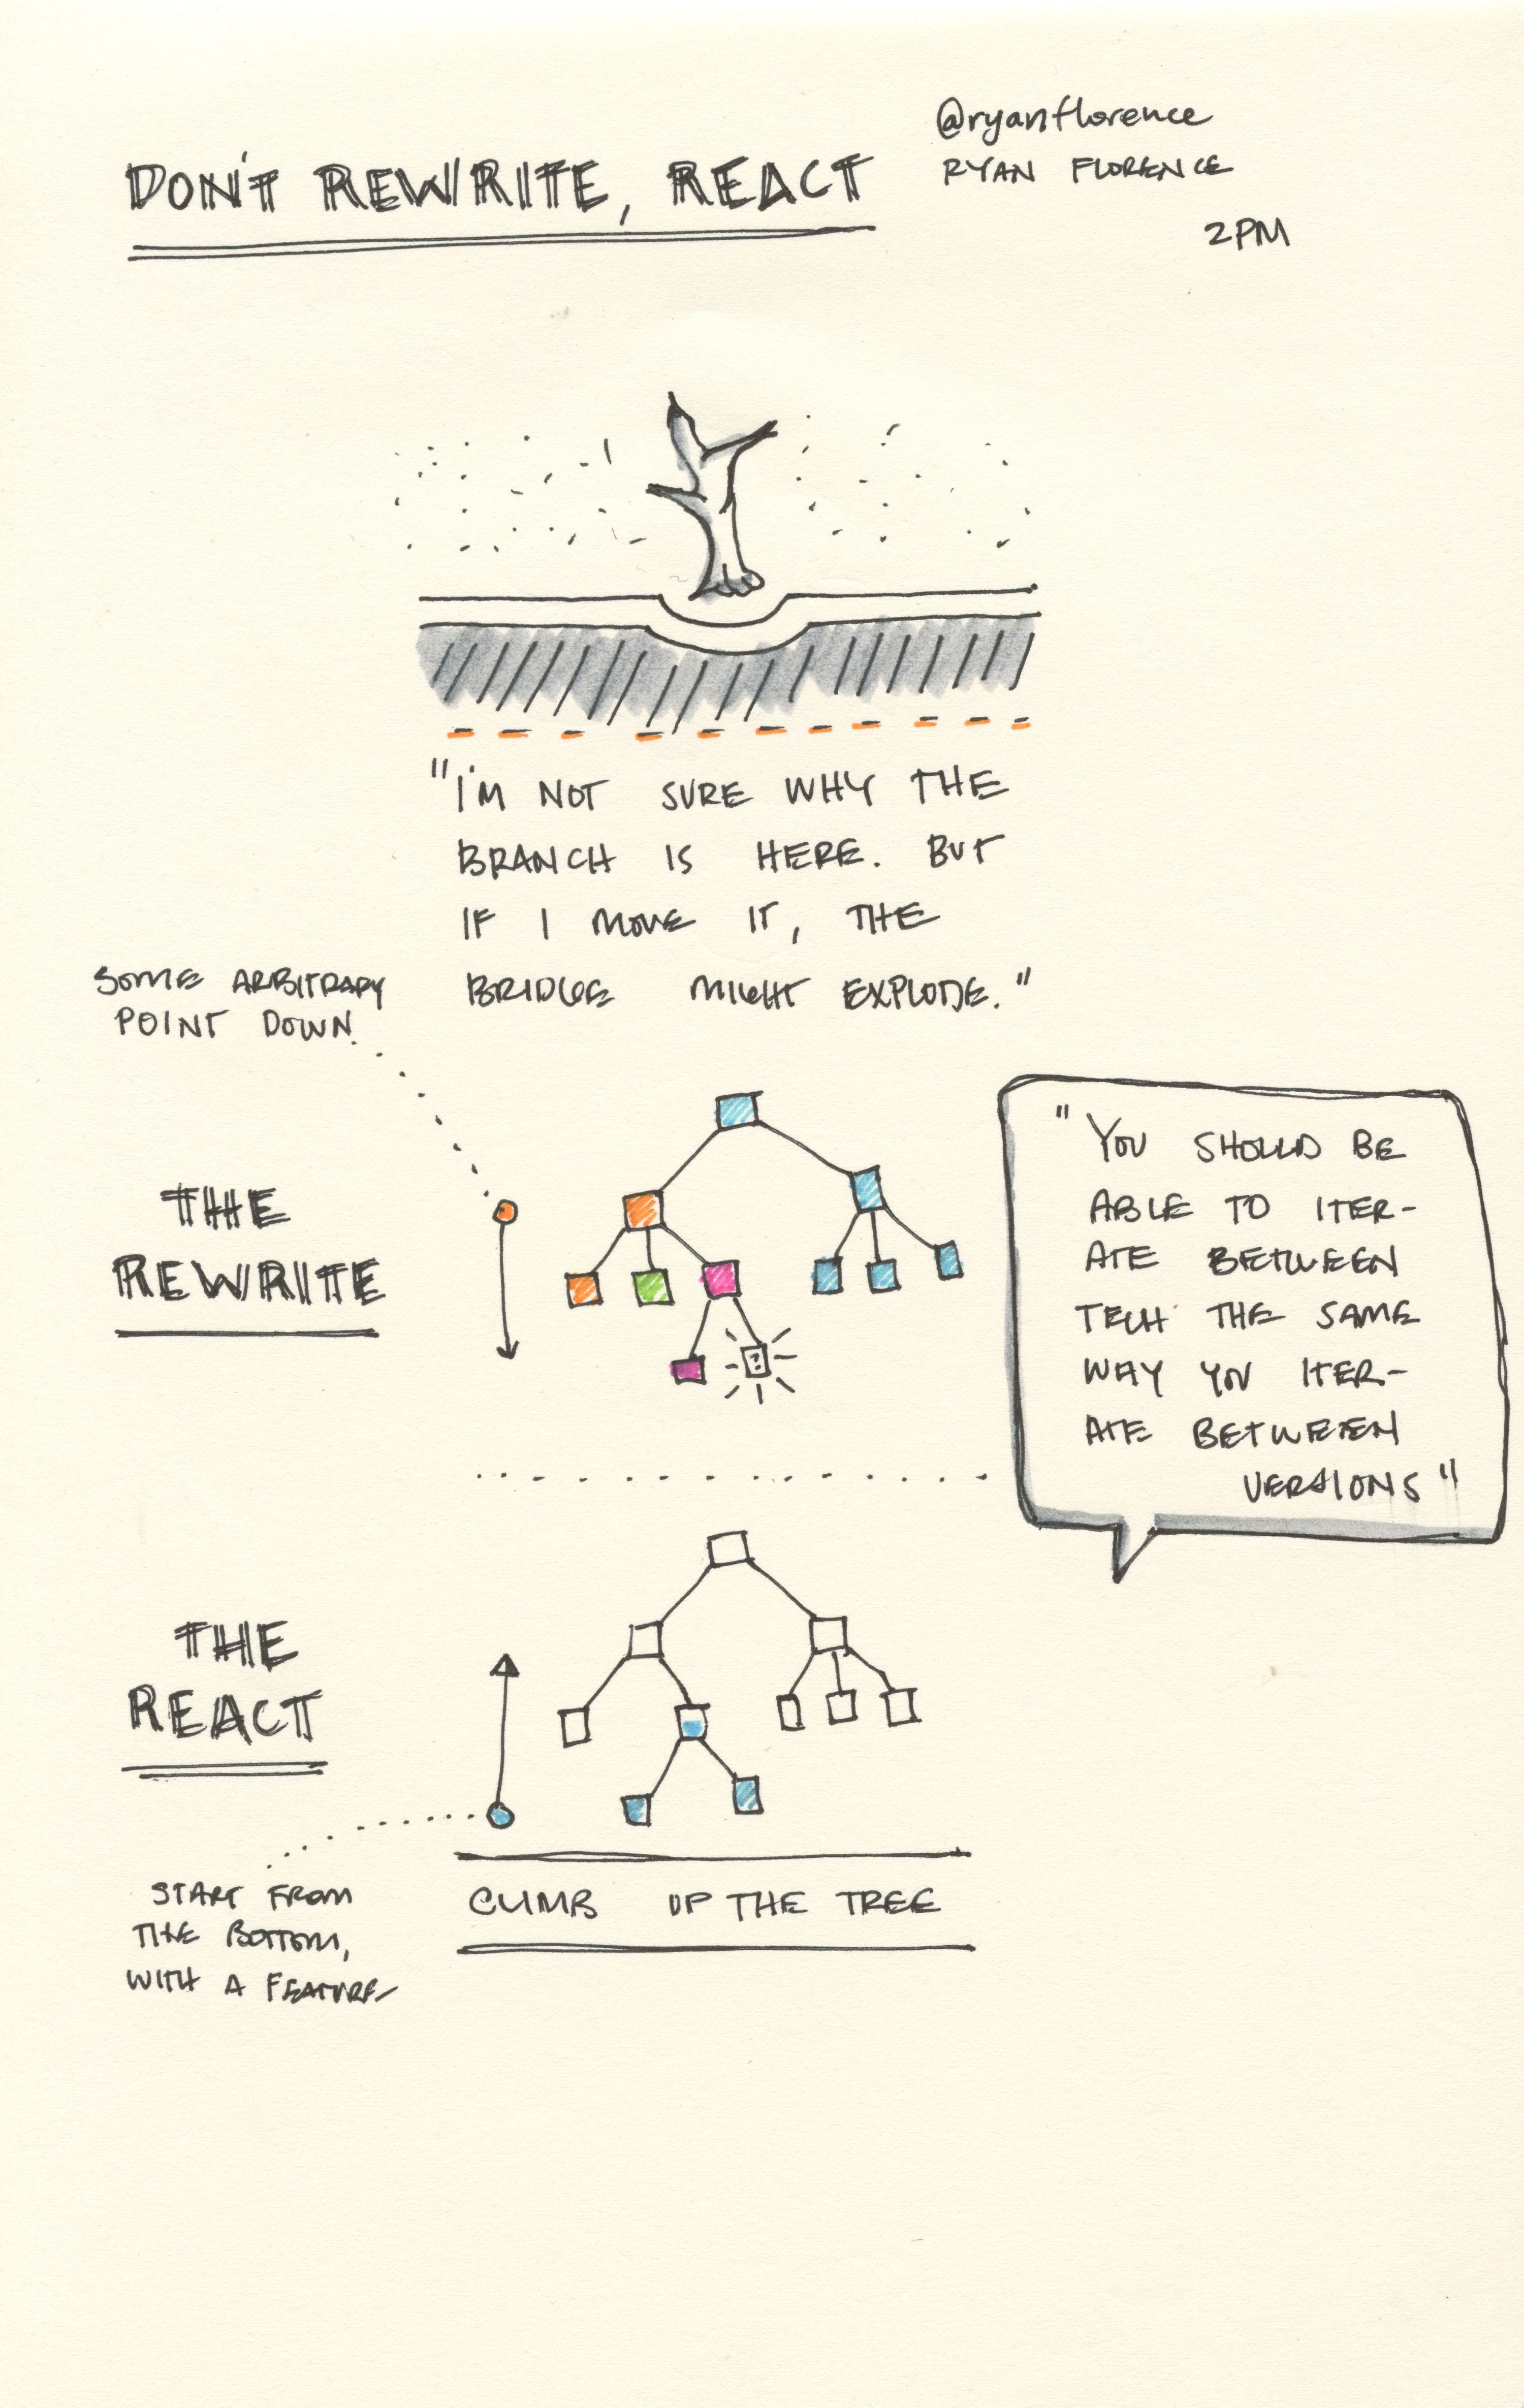 DON'T REWRITE, REACT
@ryanflorence
RYAN FLORENCE
2PM
"I'M NOT SURE WHY THE
BRANCH IS HERE. BUT
IF I MOVE IT, THE
BRIDGE MIGHT EXPLODE."
SOME ARBITRARY
POINT DOWN
THE
REWRITE
?
"YOU SHOULD BE
ABLE TO ITER-
ATE BETWEEN
TECH THE SAME
WAY YOU ITER-
ATE BETWEEN
VERSIONS"
THE
REACT
START FROM
THE BOTTOM,
WITH A FEATURE
CLIMB UP THE TREE